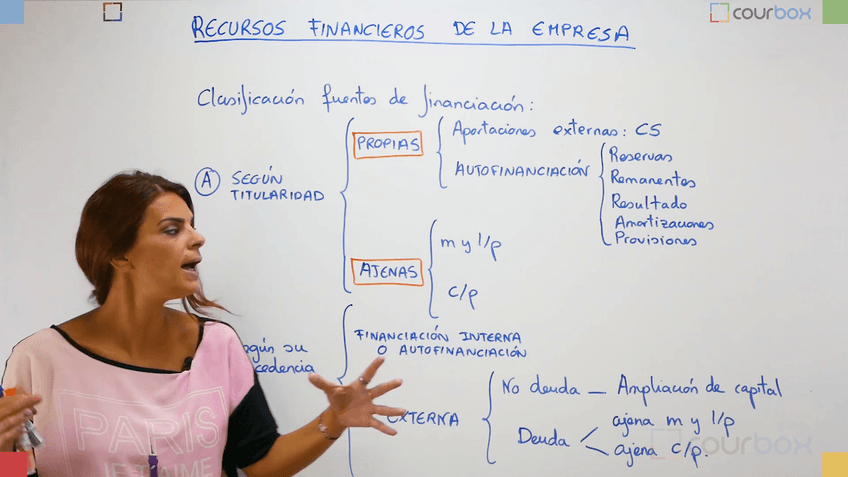 courbox
RECURSOS FINANCIEROS DE LA EMPRESA
Clasificación fuentes de financiación:
A SEGÚN
TITULARIDAD
PROPIAS
Aportaciones externas: CS
AUTOFINANCIACIÓN
Reservas
Remanentes
Resultado
Amortizaciones
Provisiones
AJENAS
m y l/p
c/p
egún su
cedencia
FINANCIACIÓN INTERNA
O AUTOFINANCIACIÓN
EXTERNA
No deuda — Ampliación de capital
Deuda
ajena m y l/p
ajena c/p.
courbox
PARIS
JE T'AIME